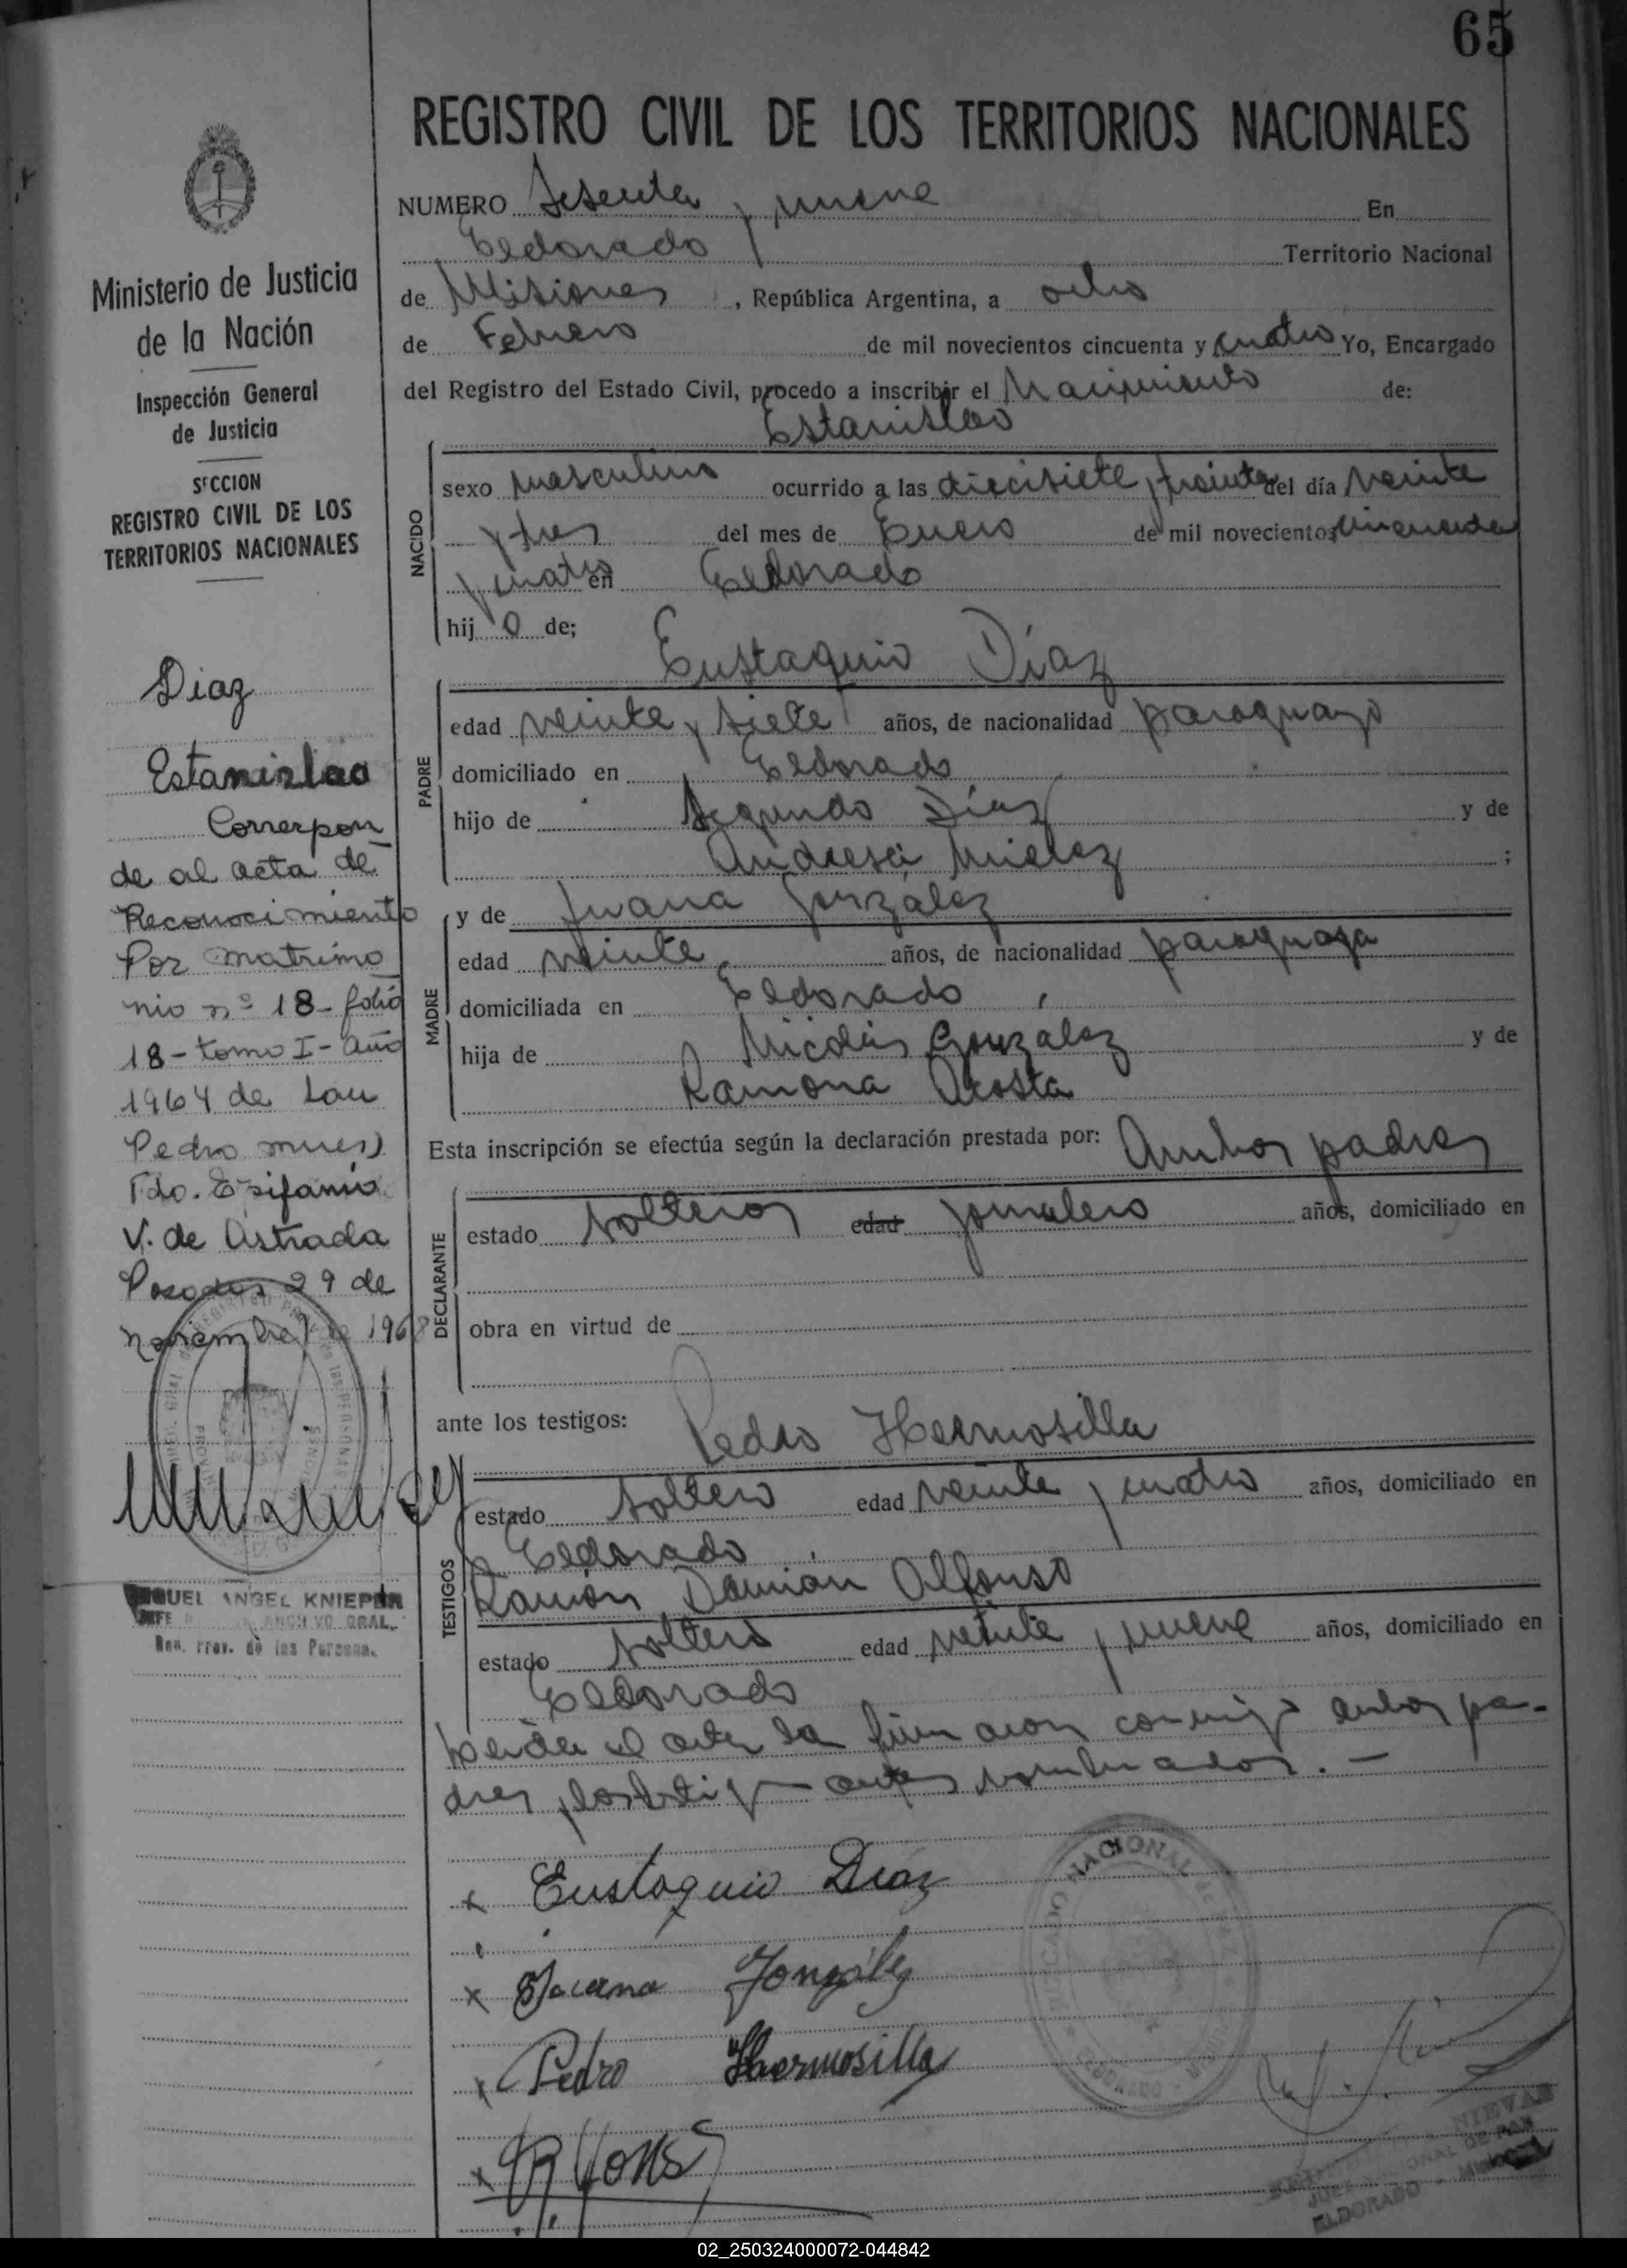 65
REGISTRO CIVIL DE LOS TERRITORIOS NACIONALES
NUMERO Sesenta y nueve En
Eldorado Territorio Nacional
de Misiones, República Argentina, a ocho
de Febrero de mil novecientos cincuenta y cuatro Yo, Encargado
del Registro del Estado Civil, procedo a inscribir el Nacimiento de:
Estanislao
NACIDO
sexo masculino ocurrido a las diecisiete y treinta del día veinte
y tres del mes de Enero de mil novecientos cincuenta
y cuatro en Eldorado
hij o de;
Eustaquio Díaz
PADRE
edad veinte y siete años, de nacionalidad paraguayo
domiciliado en Eldorado
hijo de Segundo Díaz y de
Andresa ;
MADRE
y de Juana González
edad veinte, años, de nacionalidad paraguaya
domiciliada en Eldorado,
hija de Nicolás González y de
Ramona Acosta
Esta inscripción se efectúa según la declaración prestada por: Ambos padres
DECLARANTE
estado solteros edad jornalero años, domiciliado en
obra en virtud de
ante los testigos: Pedro Hermosilla
TESTIGOS
estado soltero edad veinte y cuatro años, domiciliado en
Eldorado
Ramón Damián Alfonso
estado soltero edad veinte y nueve años, domiciliado en
Eldorado
el acta la firmaron conmigo ambos pa-
dres y los testigos antes nombrados. —
x Eustaquio Díaz
x Juana González
x Pedro Hermosilla
x
NACIONAL
JUEZ NACIONAL DE PAZ
ELDORADO - Misiones
Ministerio de Justicia
de la Nación
Inspección General
de Justicia
SECCION
REGISTRO CIVIL DE LOS
TERRITORIOS NACIONALES
Diaz
Estanislao
Correspon
de al acta de
Reconocimiento
Por matrimo
nio nº 18 - folio
18 - tomo I - año
1964 de Lau
Pedro
Fdo. Epifanio
V. de Astrada
Posadas 29 de
noviembre de 1968
MIGUEL ANGEL KNIEPER
JEFE GRAL.
Reg. Prov. de las Person.
02_250324000072-044842